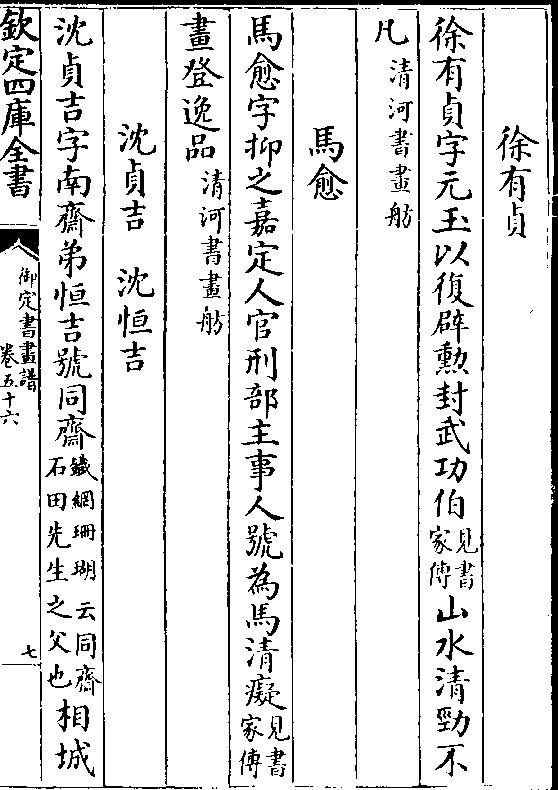 徐有貞
徐有貞字元玉以復辟勲封武功伯見書家傳山水清勁不
凡清河書畫舫
馬愈
馬愈字抑之嘉定人官刑部主事人號為馬清癡見書家傳
畫登逸品清河書畫舫
沈貞吉 沈恒吉
沈貞吉字南齋弟恒吉號同齋鐵網珊瑚云同齋石田先生之父也相城
欽定四庫全書
御定書畫譜
卷五十六
七